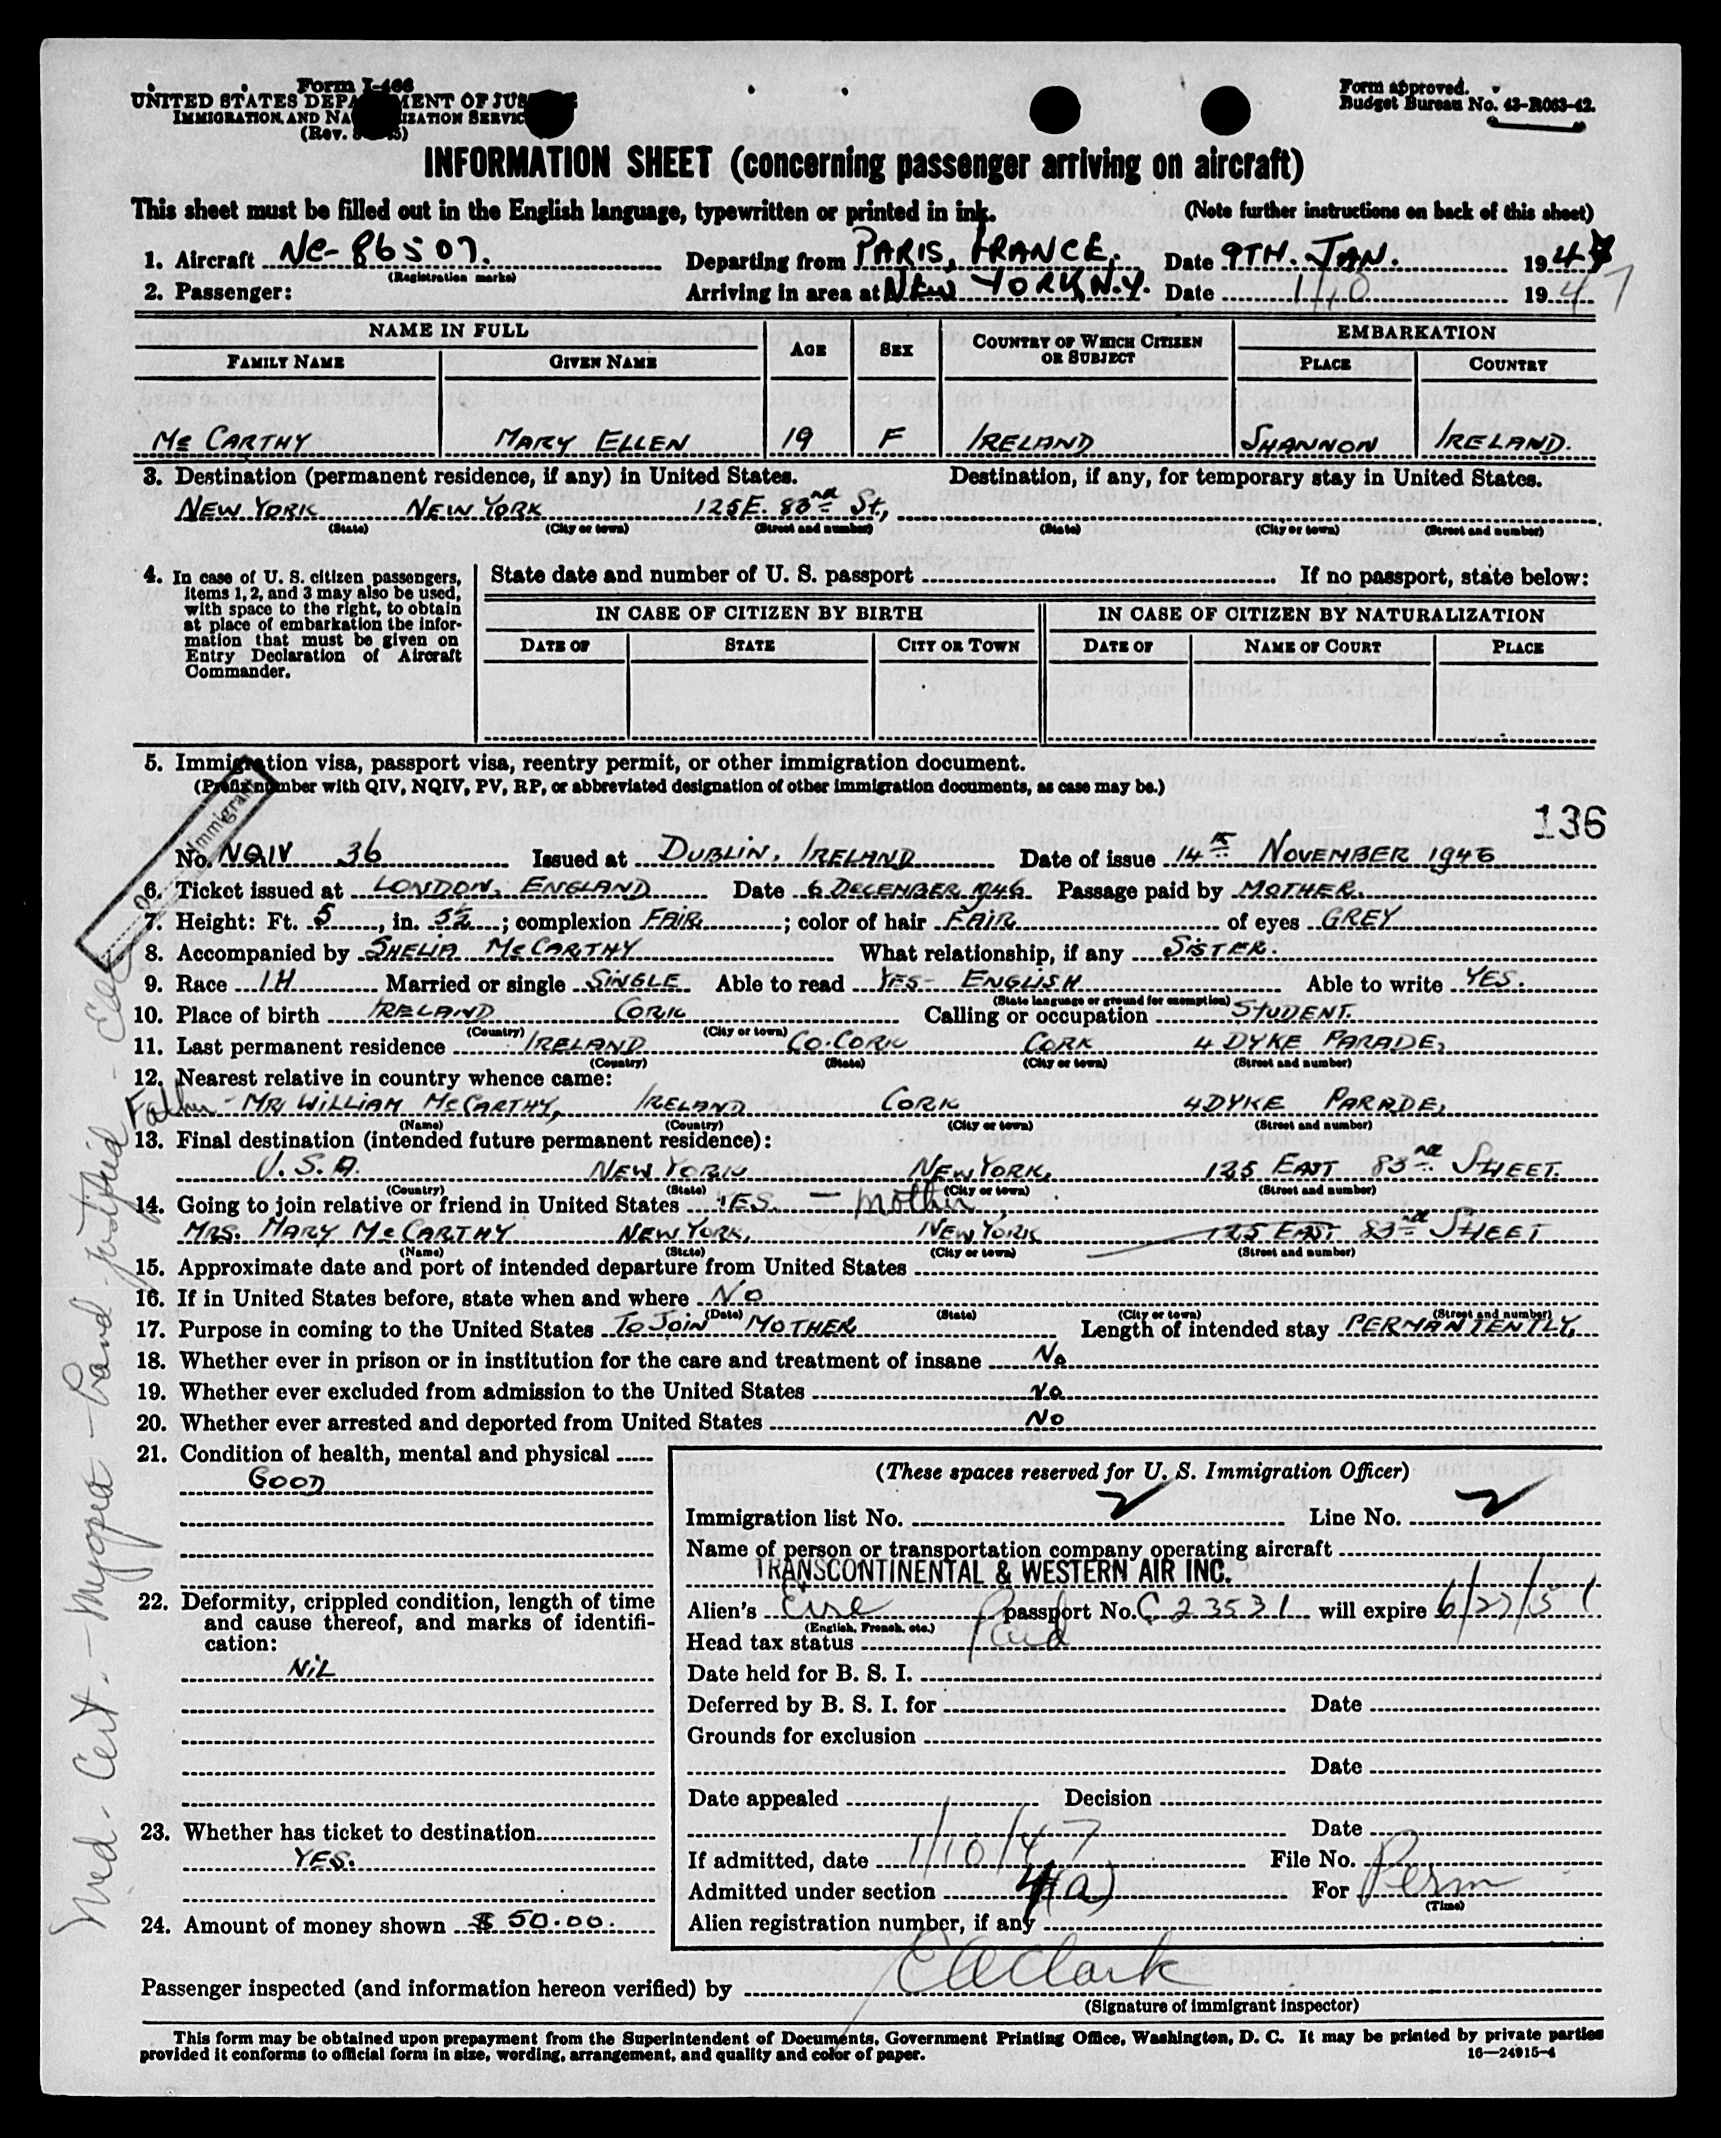 Form I-466
UNITED STATES DEPARTMENT OF JUSTICE
IMMIGRATION AND NATURALIZATION SERVICE
(Rev. 45)
Form approved.
Budget Bureau No. 43-R063-42.
INFORMATION SHEET (concerning passenger arriving on aircraft)
This sheet must be filled out in the English language, typewritten or printed in ink. (Note further instructions on back of this sheet)
1. Aircraft NC-86507. Departing from PARIS, FRANCE. Date 9TH. JAN. 1947
(Registration marks)
2. Passenger: Arriving in area at NEW YORK, N.Y. Date 1/10 1947
NAME IN FULL AGE SEX COUNTRY OF WHICH CITIZEN OR SUBJECT EMBARKATION
FAMILY NAME GIVEN NAME PLACE COUNTRY
McCARTHY MARY ELLEN 19 F IRELAND SHANNON IRELAND.
3. Destination (permanent residence, if any) in United States. Destination, if any, for temporary stay in United States.
NEW YORK NEW YORK 125 E. 83rd St.,
(State) (City or town) (Street and number) (State) (City or town) (Street and number)
4. In case of U. S. citizen passengers, items 1, 2, and 3 may also be used, with space to the right, to obtain at place of embarkation the information that must be given on Entry Declaration of Aircraft Commander.
State date and number of U. S. passport If no passport, state below:
IN CASE OF CITIZEN BY BIRTH IN CASE OF CITIZEN BY NATURALIZATION
DATE OF STATE CITY OR TOWN DATE OF NAME OF COURT PLACE
5. Immigration visa, passport visa, reentry permit, or other immigration document.
(Prefix number with QIV, NQIV, PV, RP, or abbreviated designation of other immigration documents, as case may be.)
Immigrant
136
No. NQIV 36 Issued at DUBLIN, IRELAND Date of issue 14th NOVEMBER 1946
6. Ticket issued at LONDON, ENGLAND Date 6 DECEMBER 1946 Passage paid by MOTHER.
7. Height: Ft. 5, in. 5½; complexion FAIR; color of hair FAIR of eyes GREY
8. Accompanied by SHELIA McCARTHY What relationship, if any SISTER.
9. Race IH Married or single SINGLE Able to read YES - ENGLISH Able to write YES.
(State language or ground for exemption)
10. Place of birth IRELAND CORK Calling or occupation STUDENT.
(Country) (City or town)
11. Last permanent residence IRELAND CO. CORK CORK 4 DYKE PARADE,
(Country) (State) (City or town) (Street and number)
12. Nearest relative in country whence came:
Father - MR WILLIAM McCARTHY, IRELAND CORK 4 DYKE PARADE,
(Name) (Country) (City or town) (Street and number)
13. Final destination (intended future permanent residence):
U.S.A. NEW YORK NEW YORK, 125 EAST 83rd STREET.
(Country) (State) (City or town) (Street and number)
14. Going to join relative or friend in United States YES. - mother
MRS. MARY McCARTHY NEW YORK, NEW YORK 125 EAST 83rd STREET
(Name) (State) (City or town) (Street and number)
15. Approximate date and port of intended departure from United States
16. If in United States before, state when and where NO
(Date) (State) (City or town) (Street and number)
17. Purpose in coming to the United States TO JOIN MOTHER Length of intended stay PERMANTENTLY.
18. Whether ever in prison or in institution for the care and treatment of insane No
19. Whether ever excluded from admission to the United States No
20. Whether ever arrested and deported from United States No
21. Condition of health, mental and physical
GOOD
22. Deformity, crippled condition, length of time and cause thereof, and marks of identification:
NIL
23. Whether has ticket to destination
YES.
24. Amount of money shown $50.00.
(These spaces reserved for U. S. Immigration Officer)
Immigration list No. Line No.
Name of person or transportation company operating aircraft
TRANSCONTINENTAL & WESTERN AIR INC.
Alien's Eire passport No. C 23531 will expire 6/27/51
(English, French, etc.)
Head tax status Paid
Date held for B. S. I.
Deferred by B. S. I. for Date
Grounds for exclusion
Date
Date appealed Decision
Date
If admitted, date 1/10/47 File No.
Admitted under section 4(a) For Perm
(Time)
Alien registration number, if any
Med. Cert. - Myopia - P and justified -
Passenger inspected (and information hereon verified) by E A Clark
(Signature of immigrant inspector)
This form may be obtained upon prepayment from the Superintendent of Documents, Government Printing Office, Washington, D. C. It may be printed by private parties
provided it conforms to official form in size, wording, arrangement, and quality and color of paper. 16—24915-4